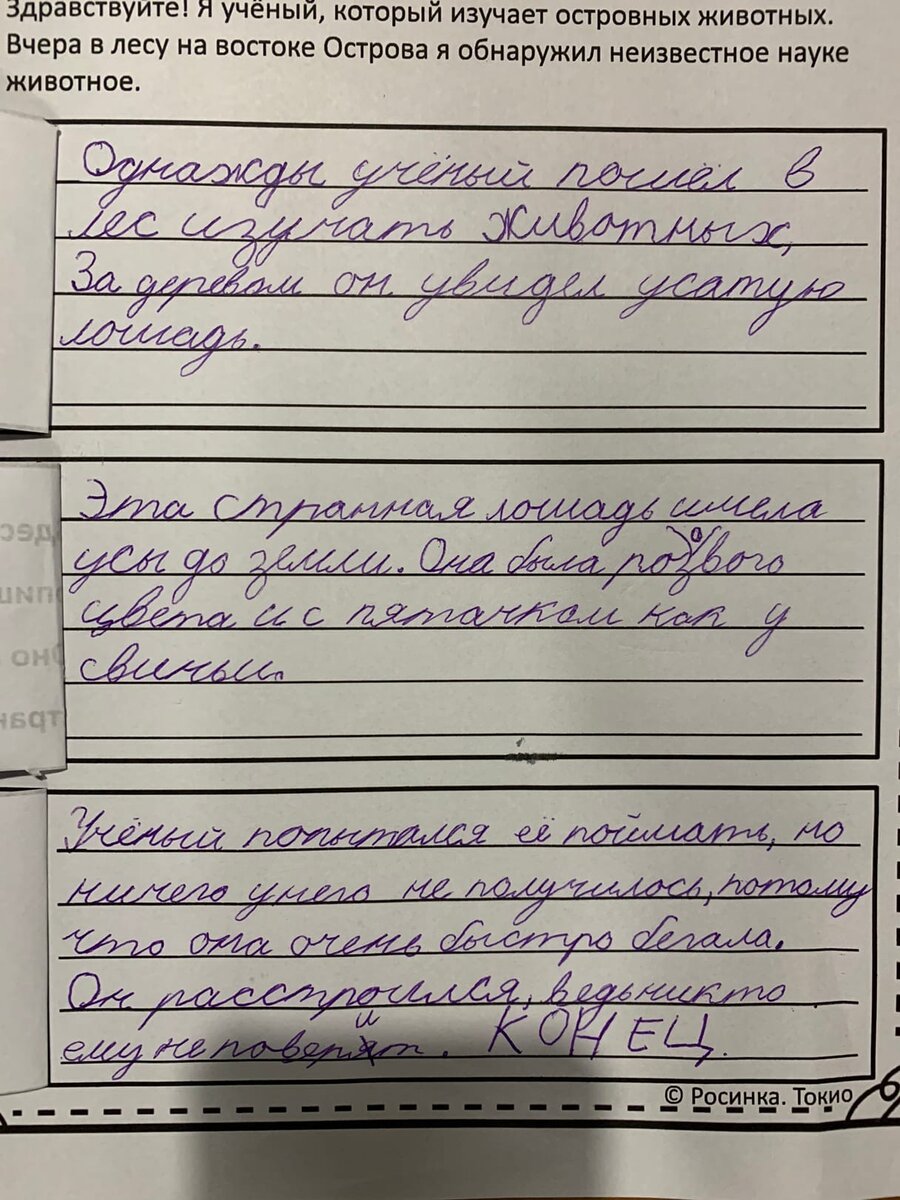 Здравствуйте! Я учёный, который изучает островных животных.
Вчера в лесу на востоке Острова я обнаружил неизвестное науке
животное.
Однажды учёный пошёл в
лес изучать животных,
За деревом он увидел усатую
лошадь.
Эта странная лошадь имела
усы до земли. Она была розового
цвета и с пятачком как у
свиньи.
Учёный попытался её поймать, но
ничего у него не получилось, потому
что она очень быстро бегала.
Он расстроился, ведь никто
ему не поверит. КОНЕЦ.
© Росинка. Токио